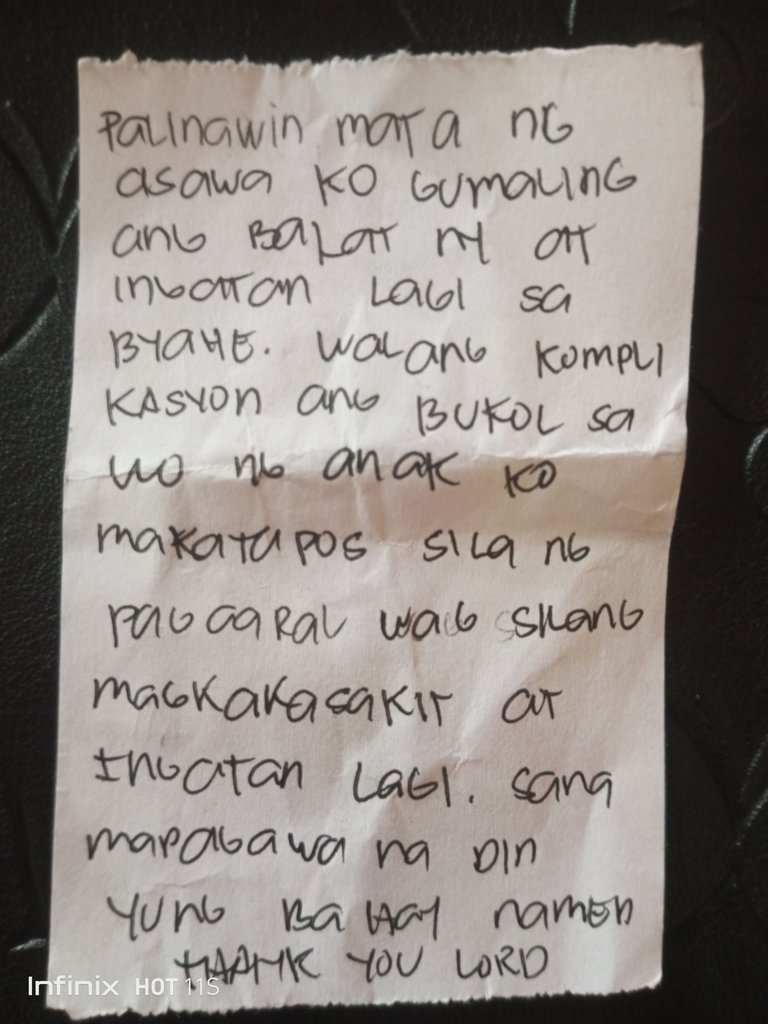 PALINAWIN MATA NG
ASAWA KO GUMALING
ANG BALAT NY AT
INGATAN LAGI SA
BYAHE. WALANG KOMPLI
KASYON ANG BUKOL SA
UO NG ANAK KO
MAKATAPOS SILA NG
PAG AARAL WAG SILANG
MAGKAKASAKIT AT
INGATAN LAGI. SANA
MAPAGAWA NA DIN
YUNG BAHAY NAMEN
THANK YOU LORD
Infinix HOT 11S